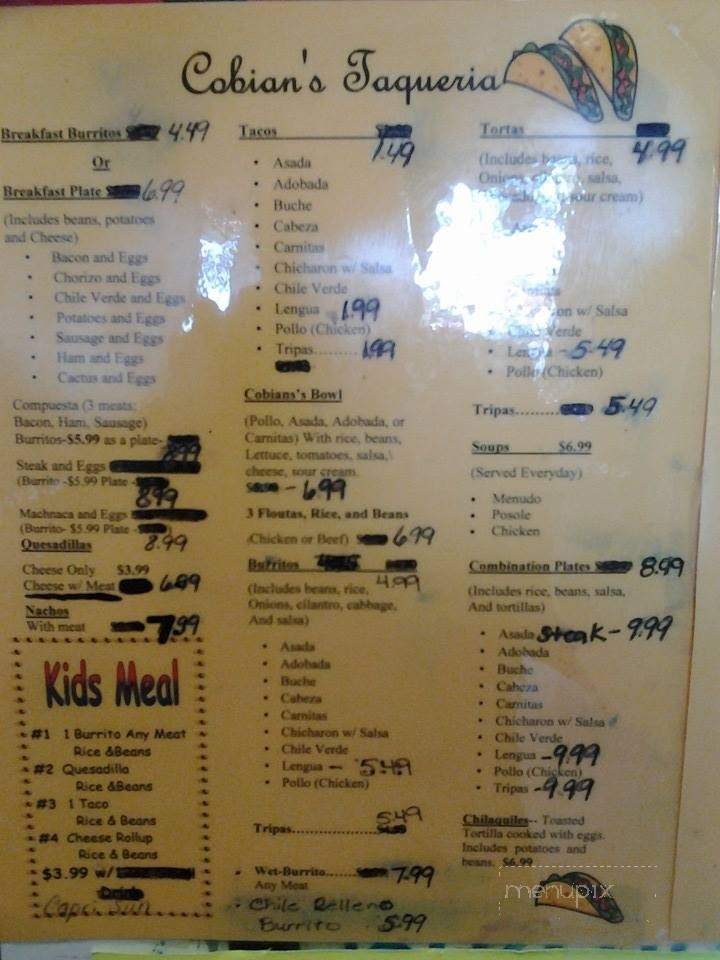 Cobian's Taqueria
Breakfast Burritos $ 4.49
Or
Breakfast Plate 6.99
(Includes beans, potatoes
and Cheese)
• Bacon and Eggs
• Chorizo and Eggs
• Chile Verde and Eggs
• Potatoes and Eggs
• Sausage and Eggs
• Ham and Eggs
• Cactus and Eggs
Compuesta (3 meats:
Bacon, Ham, Sausage)
Burritos-$5.99 as a plate-
8.99
Steak and Eggs
(Burrito -$5.99 Plate -
8.99
Machnaca and Eggs
(Burrito- $5.99 Plate -
8.99
Quesadillas
Cheese Only $3.99
Cheese w/ Meat 6.99
Nachos
With meat 7.99
Kids Meal
#1 1 Burrito Any Meat
Rice &Beans
#2 Quesadilla
Rice &Beans
#3 1 Taco
Rice & Beans
#4 Cheese Rollup
Rice & Beans
$3.99 w/
Drink
Capri Sun
Tacos
1.49
• Asada
• Adobada
• Buche
• Cabeza
• Carnitas
• Chicharon w/ Salsa
• Chile Verde
• Lengua 1.99
• Pollo (Chicken)
• Tripas......... 1.99
Cobians's Bowl
(Pollo, Asada, Adobada, or
Carnitas) With rice, beans,
Lettuce, tomatoes, salsa,\
cheese, sour cream.
- 6.99
3 Floutas, Rice, and Beans
(Chicken or Beef) $ 6.99
Burritos
4.99
(Includes beans, rice,
Onions, cilantro, cabbage,
And salsa)
• Asada
• Adobada
• Buche
• Cabeza
• Carnitas
• Chicharon w/ Salsa
• Chile Verde
• Lengua - 5.49
• Pollo (Chicken)
5.49
Tripas......................
• Wet-Burrito...... 7.99
Any Meat
• Chile Relleno
Burrito 5.99
Tortas
4.99
(Includes beans, rice,
salsa,
sour cream)
on w/ Salsa
Chile Verde
• Lengua - 5.49
• Pollo (Chicken)
Tripas......... 5.49
Soups $6.99
(Served Everyday)
• Menudo
• Posole
• Chicken
Combination Plates $ 8.99
(Includes rice, beans, salsa,
And tortillas)
• Asada Steak - 9.99
• Adobada
• Buche
• Cabeza
• Carnitas
• Chicharon w/ Salsa
• Chile Verde
• Lengua - 9.99
• Pollo (Chicken)
• Tripas - 9.99
Chilaquiles-- Toasted
Tortilla cooked with eggs.
Includes potatoes and
beans. $6.99
menupix